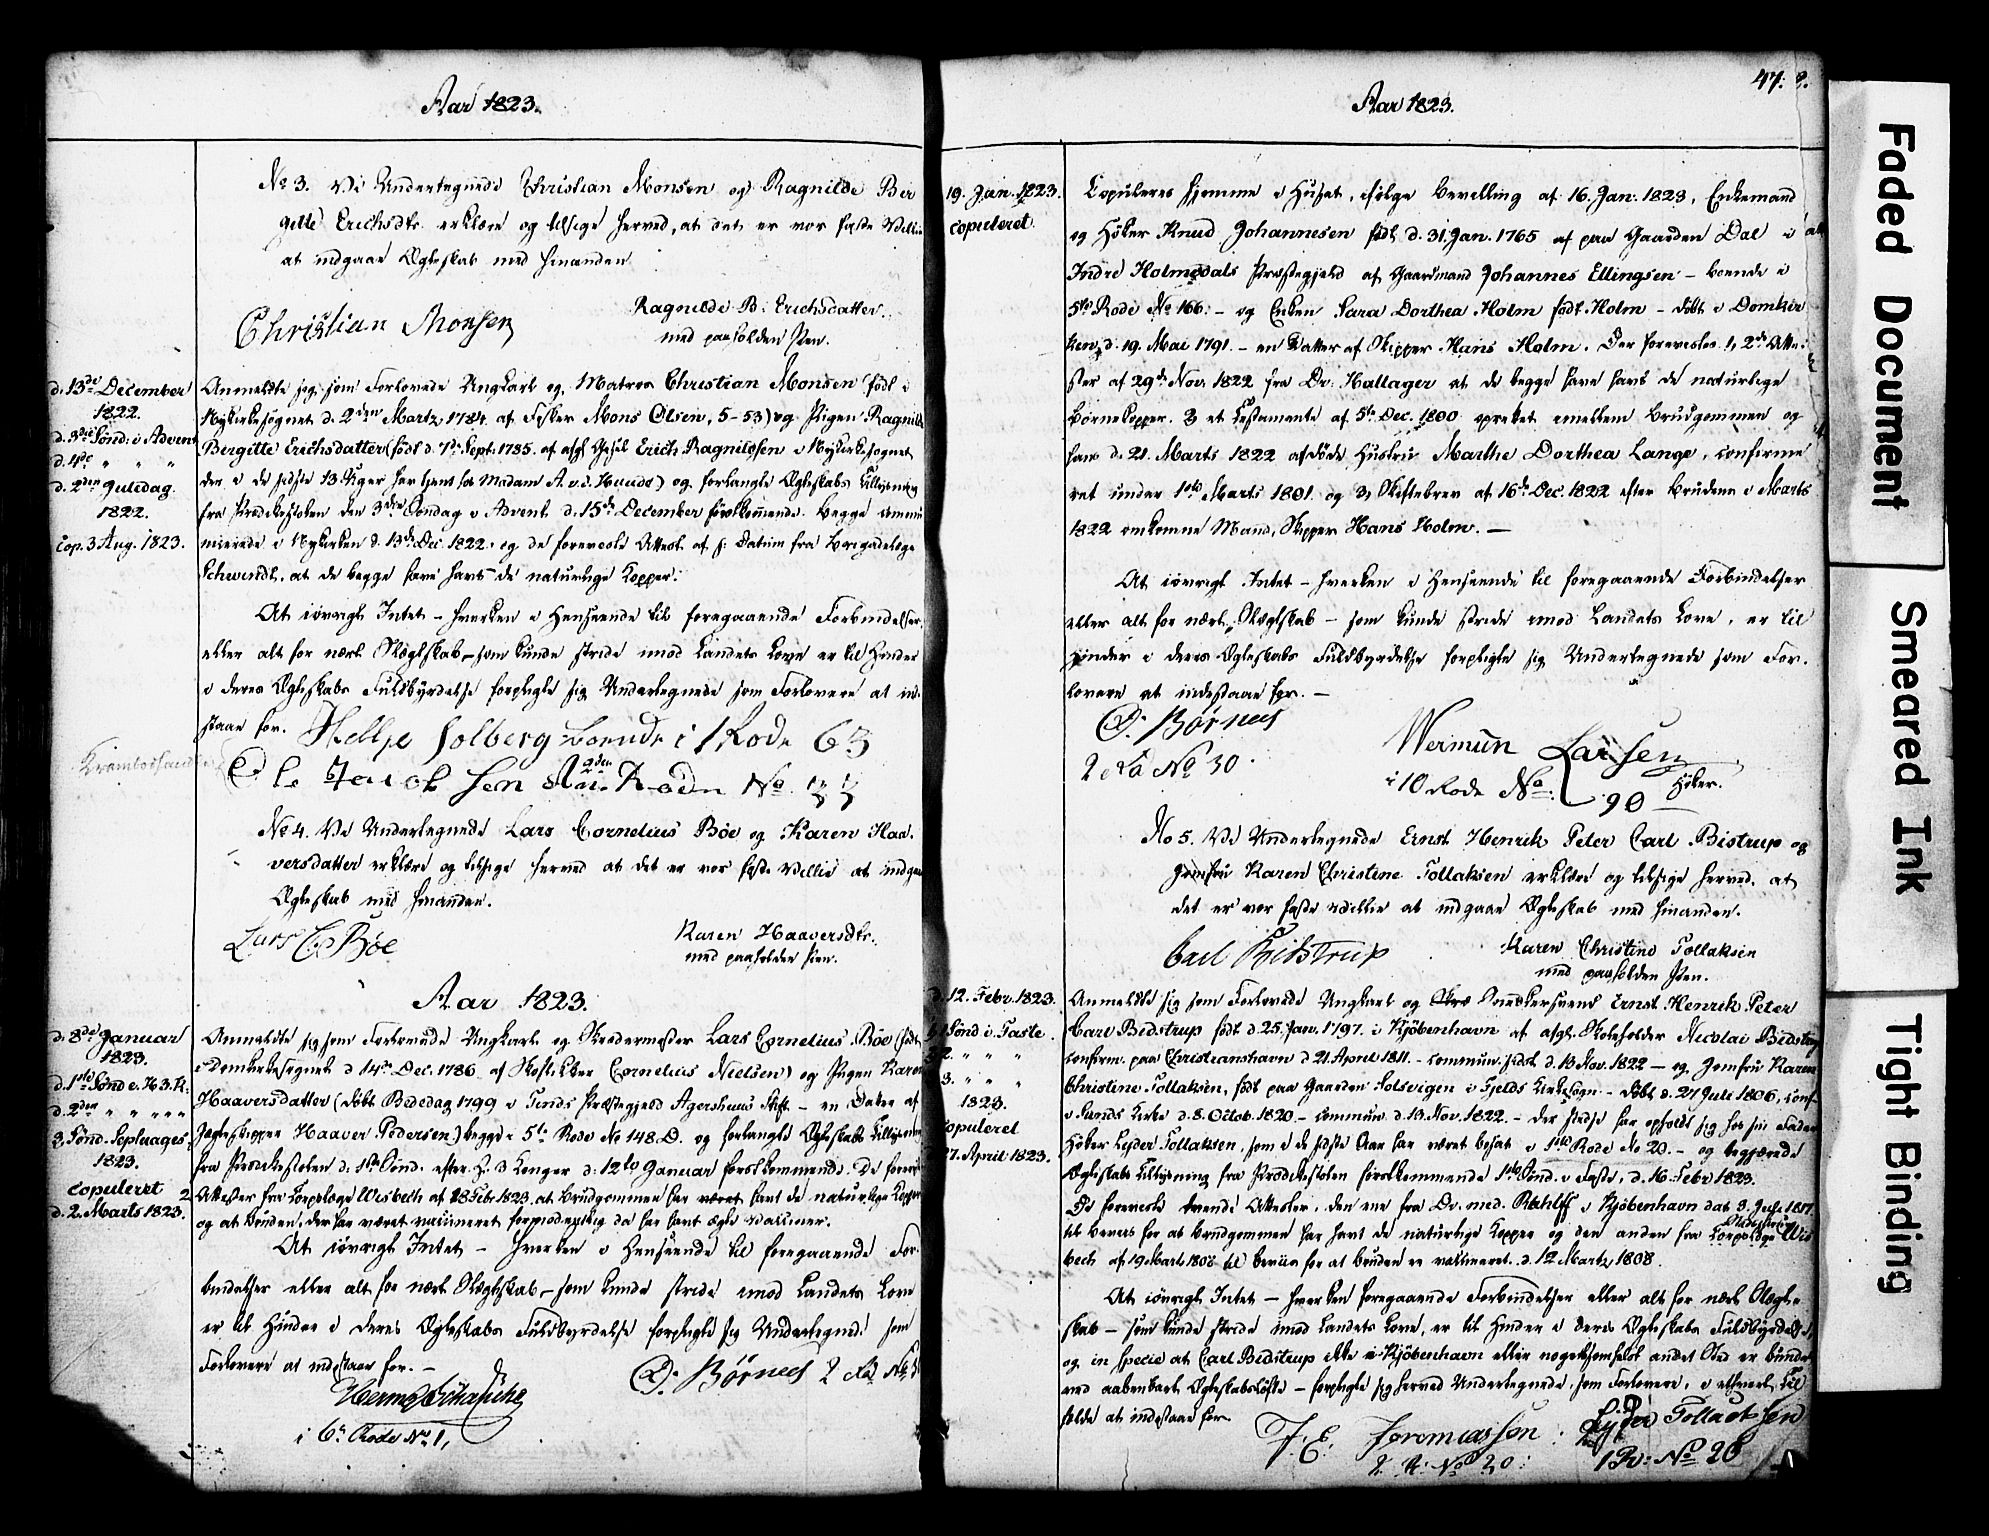 Aar 1823.
No 3. Vi Undertegnede Christian Monsen og Ragnilde Bir
gitte Erichsdtr. erklære og tilsige herved, at det er vor faste Villie
at indgaae Ægteskab med hinanden.
Christian Monsen
Ragnilde B: Erichsdatter.
med paaholden Pen.
d. 13de December
1822.
d. 3die Sönd: i Advent
d. 4de " " "
d. 2den Juledag.
1822.
Cop. 3 Aug. 1823.
Anmeldte sig som Forlovede Ungkarl og Matros Christian Monsen (födt i
Nykirkesognet d. 2den Martz 1784 af Fisker Mons Olsen, 5-53) og Pigen Ragnilde
Bergitte Erichsdatter (födt d. 7de Sept: 1785. af afgl. Erich Ragnildsen i Nykirkesognet
der i de sidste 13 Uger har tjent hos Madam A. v. d. ) og forlangte Ægteskabs Tillysning
fra Prædikestolen den 3die Söndag i Advent d. 15de December förstkommende. Begge commu
nicerede i Nykirken d. 13de Dec. 1822. og de foreviste Attest af s: Datum fra Brigadelæge
Schwindt, at de begge have havt de naturlige Kopper.
At iövrigt Intet - hverken i Henseende til foregaaende Forbindelser,
eller alt for nært Slægtskab, som kunde stride imod Landets Love er til Hinder
i deres Ægteskabs Fuldbyrdelse forpligte sig Undertegnede som Forlovere at inde
staae for.
Helljе Solberg boende i 1 Rode 63
Ole Jacobsen 2den Rode No. 33
No 4. Vi Undertegnede Lars Cornelius Böe og Karen Haa-
versdatter erklære og tilsige herved at det er vor faste Villie at indgaae
Ægteskab med hinanden.
Lars C. Böe
Karen Haaversdtr.
med paaholden Pen.
Aar 1823.
d. 8de Januar
1823.
d. 1ste Sönd e. H. 3. K.
d. 2den " " " "
3, Sönd. Septuages.
1823.
Copuleret
d. 2. Marts 1823.
Anmeldte sig som Forlovede Ungkarl og Lars Cornelius Böe (födt
i Domkirkesognet d 14de Dec. 1786 af Cornelius Nielsen) og Pigen Karen
Haaversdatter (döbt Bededag 1799 i Præstegjeld Agershuus Stift - en Datter af
Haaver Pedersen) begge i 5te Rode No 148. D. og forlangte Ægteskabs Tillysning
fra Prædikestolen d: 1ste Sönd. efter H. 3 Konger d: 12te Januar förstkommende. De foreviste
Attester fra Corpslæge Wisbech af 28 Febr 1823, at Brudgommen har været havt de naturlige Kopper
og at Bruden, der har været vaccineret formodentlig da har havt ægte Vacciner.
At iövrigt Intet - hverken i Henseende til foregaaende For
bindelser eller alt for nært Slægtskab, som kunde stride imod Landets Love
er til Hinder i deres Ægteskabs Fuldbyrdelse forpligte sig Undertegnede som
Forlovere at indestaae for. -
i 6te Rode No 1,
O: Börnes 2 Ro No
47.
Aar 1823.
19. Jan. 1823.
copuleret
Copuleres hjemme i Huset, ifölge Bevilling af 16. Jan: 1823, Enkemand
og Höker Knud Johannesen födt d. 31. Jan. 1765 af paa Gaarden Dal i
Indre Holmedals Præstegjeld af Gaardmand Johannes Ellingsen - boende i
5te Rode No 166. - og Enken Sara Dorthea Holm födt Holm - döbt i Domkir
ken, d. 19. Mai 1791. - en Datter af Skipper Hans Holm. Der forevistes 1, 2de Atte-
ster af 29de Nov. 1822 fra Dr. Hallager at de begge have havt de naturlige
Börnekopper. 2 et Testamente af 5te Dec. 1800 oprettet imellem Brudgommen og
hans d. 21. Marts 1822 afdöde Hustrue Marthe Dorthea Lange, confirme
ret under 1ste Marts 1801. og 3, Skiftebrev af 16de Dec. 1822 efter Brudens i Marts
1822 omkomne Mand, Skipper Hans Holm. -
At iövrigt Intet - hverken i Henseende til foregaaende Forbindelser
eller alt for nært Slægtskab - som kunde stride imod Landets Love, er til
Hinder i deres Ægteskabs Fuldbyrdelse forpligte sig Undertegnede som For-
lovere at indestaae for. -
O: Börnes
2 Ro No 30.
Wermun Larsen
Höker.
i 10 Rode No: 90
No 5. Vi Undertegnede Ernst Henrik Peter Carl Bistrup og
Jomfru Karen Christine Tollaksen erklære og tilsige herved, at
det er vor faste Villie at indgaae Ægteskab med hinanden.
Carl Bidstrup
Karen Christine Tollaksen
med paaholden Pen.
d. 12. Febr. 1823.
Sönd i Faste.
2. " " "
3. " " "
1823.
Copuleret
27. April 1823.
Anmeldte sig som Forlovede Ungkarl og Snedkersvend Ernst Henrik Peter
Carl Bidstrup födt d. 25. Jan. 1797. i Kjöbenhavn af afgl. Skoleholder Nicolai Bidstrup
confirm. paa Christianshavn d 21. April 1811. - commun. sidst d. 13 Nov. 1822 - og Jomfru Karen
Christine Tollaksen, födt paa Gaarden Solsvigen i Fjelds Kirkesogn. - döbt d. 27 Juli 1806, conf.
i Sunds Kirke d. 8. Octob. 1820 - commun. d. 13. Nov. 1822. - der sidst har opholdt sig hos sin Fader
Höker Lyder Tollaksen, som i de sidste Aar har været bosat i 1ste Rode No 20. - og begjærede
Ægteskabs Tillysning fra Prædikestolen förstkommende 1ste Sönd. i Faste, d. 16. Febr 1823.
De foreviste tvende Attester, den ene fra Dr. med. i Kjöbenhavn dat 3. Julii 1817.
til Beviis for at Brudgommen har havt de naturlige Kopper og den anden fra Corpslæge Wis
bech af 19 Mart. 1808 til Beviis for at Bruden er vaccineret. d. 12 Martz 1808.
At iövrigt Intet - hverken foregaaende Forbindelser eller alt for nært Slægt-
skab - som kunde stride imod Landets Love, er til Hinder i deres Ægteskabs Fuldbyrdelse,
og in specie at Carl Bidstrup ikke i Kjöbenhavn eller nogetsomhelst andet Sted er bunden
ved aabenbart Ægteskabslöfte - forpligte sig herved Undertegnede, som Forlovere, i ethvert Til
fælde at indestaae for.
J. E. Jeremiassen:
2. R: No 20:
Lyder Tollachsen
1 Ro: No 20
Faded Document
Smeared Ink
Tight Binding